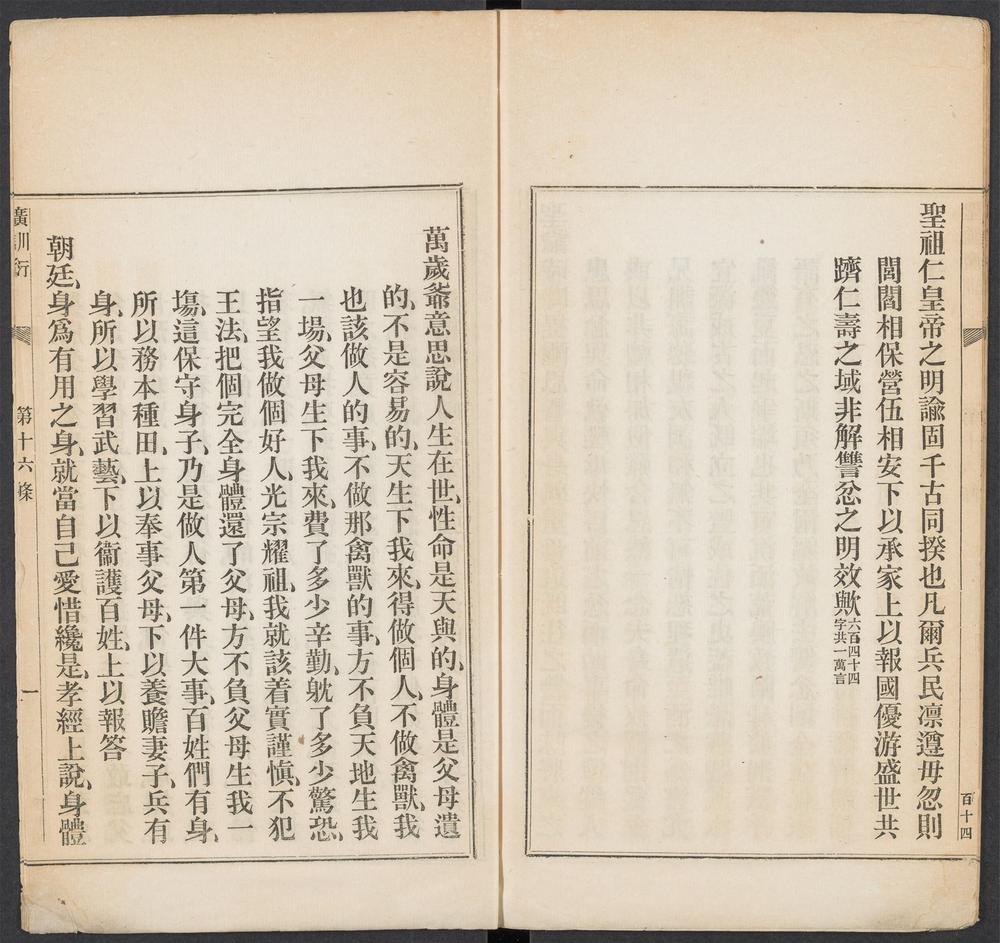 聖祖仁皇帝之明諭固千古同揆也凡爾兵民凛遵毋忽則
閭閻相保營伍相安下以承家上以報國優游盛世共
躋仁壽之域非解讐忿之明效歟六百四十四
字共一萬言
百十四
萬歲爺意思說人生在世、性命是天與的、身體是父母遺
的、不是容易的、天生下我來、得做個人、不做禽獸、我
也該做人的事、不做那禽獸的事、方不負天地生我
一場、父母生下我來、費了多少辛勤、躭了多少驚恐、
指望我做個好人、光宗耀祖、我就該着實謹愼、不犯
王法、把個完全身體還了父母、方不負父母生我一
塲、這保守身子、乃是做人第一件大事、百姓們有身、
所以務本種田、上以奉事父母、下以養贍妻子、兵有
身、所以學習武藝、下以衞護百姓、上以報答
朝廷、身爲有用之身、就當自己愛惜纔是、孝經上說、身體
廣訓衍
第十六條
一